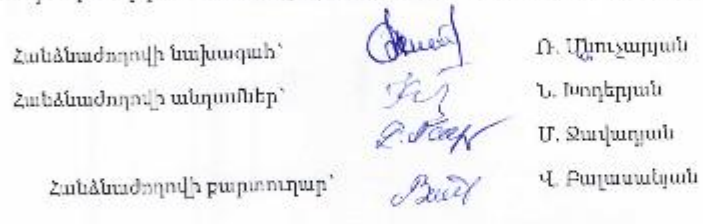 Հանձնաժողովի նախագահ՝ Ռ. Մնուչարյան
Հանձնաժողովի անդամներ՝ Ն. Խոդերյան
Մ. Զավարյան
Հանձնաժողովի քարտուղար՝ Վ. Բալասանյան